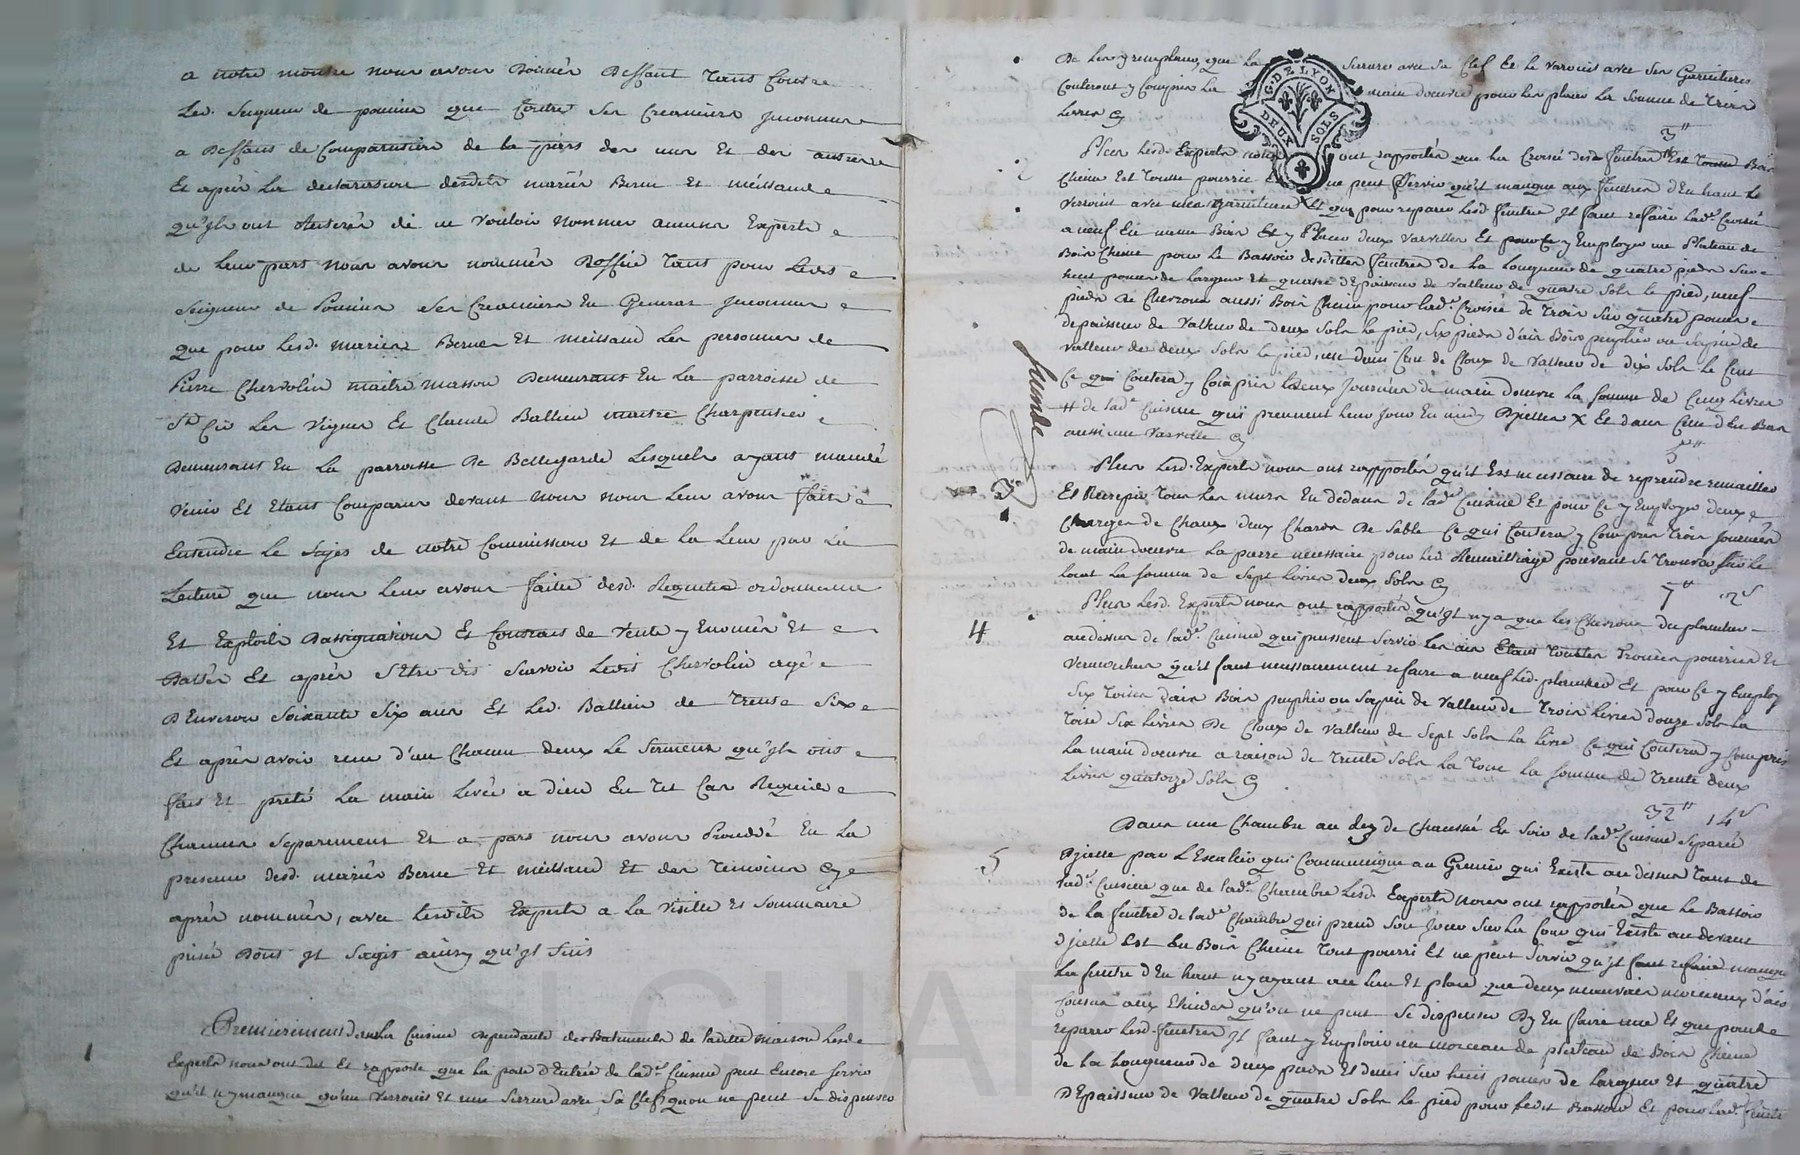 a notre montre nous avons donnés deffaut tant contre
Led. Seigneur de pomier que contre ses Creanciers jnconnus
a deffaut de Comparution de la part des uns Et des autres
Et après la declaration desdits mariés Berne et meissaud
qu'jls ont Reiteréz de ne vouloir nommer aucuns Experts
de leur part nous avons nommés d'office tant pour Ledit
Seigneur de Pomier Ses Creanciers En General jnconnus
que pour Lesd. mariés Berne Et meissaud Les personnes de
Pierre Chervolin maitre masson demeurant En La parroisse de
St Cir Les Vignes Et Claude Ballieu maitre Charpentier
demeurant En La parroisse de Bellegarde Lesquels ayant mandé
venir Et Etant Comparus devant nous nous Leur avons fait
Entendre Le Sujet de notre Commission Et de La Leur par La
Lecture que nous Leur avons faitte desd. Requete ordonnance
Et Exploit d'assignation Et Contrat de Vente y Enoncés Et
dattés Et après S'etre dit Scavoir Ledit Chervolin agé
d'Environ Soixante Six ans Et Led. Ballieu de Trente Six
Et après avoir recu d'un Chacun deux Le Serment qu'jls ont
fait Et preté La main Levée a dieu En tel Cas Requis
Chacun Separement Et a part nous avons Proceddé En La
presence desd. mariés Berne Et meissaud Et des Temoins Cy
après nommés, avec Lesdits Experts a La Visitte Et Sommaire
prisée dont jl S'agit ainsy qu'jl Suit
1
Premierement dans La Cuisine dependante des Batiments de laditte maison Lesd.
Experts nous ont dit Et rapporté que La porte d'Entrée de lad.e Cuisine peut Encore Servir
qu'il n'y manque qu'un Verrouil Et une Serrure avec Sa Clef qu'on ne peut Se dispenser
de Les y remplacer, que La Serrure avec Sa Clef Et le Verrouil avec Ses Garnitures
Couteront y Compris La main d'oeuvre pour Les placer La Somme de Trois
Livres Cy
3#
G. DE LYON
DEUX SOLS
2
Plus Lesd. Experts nous ont rapportés que La Croisée desd. fenetres Est Toute Bois
Chene Est Toutte pourrie Et ne peut Servir qu'il manque aux fenetres d'En haut Le
Verrouil avec Ses Garnitures Et que pour reparer Lesd. fenetres Jl faut refaire Lad.e Croisée
a neuf En meme Bois Et y Placer deux Varvelles Et pour Ce y Employer un Plateau de
Bois Chene pour Le Bassoir desdittes fenetres de La Longueur de quatre pieds Sur
huit pouces de Largeur Et quatre d'Epaisseur de Valleur de quatre Sols Le pied, neuf
pieds de Chevrons aussi Bois Chene pour Lad.e Croisée de Trois Sur quatre pouces
d'epaisseur de Valleur de deux Sols Le pied, Six pieds d'ais Bois peuplier ou Sapin de
Valleur de deux Sols Le pied, un demi Cent de Cloux de Valleur de dix Sols Le Cent
Ce qui Coutera y Compris deux Journées de main d'oeuvre La Somme de Cinq Livres
# de lad.e Cuisine qui prennent Leur Jour En midy d'jcelles X Et dans Celle d'En Bas
aussi une Varvelle Cy
5#
3
Plus Lesd. Experts nous ont rapportés qu'il Est necessaire de reprendre remailler
Et Recrepir Tous Les murs En dedans de lad.e Cuisine Et pour Ce y Employer deux
Charges de Chaux deux Chars de Sable Ce qui Coutera y Compris Trois Journées
de main d'oeuvre La pierre necessaire pour Led. Remaillage pouvant Se Trouver Sur Le
Local La Somme de Sept Livres deux Sols Cy
7# 2s
4
Plus Lesd. Experts nous ont rapportés qu'jl n'y a que Les Chevrons du plancher
au dessus de lad.e Cuisine qui puissent Servir Les ais Etant Touttes Trouées pourries Et
Vermoulues qu'il faut necessairement refaire a neuf Led. plancher Et pour Ce y Employer
Six Toises d'ais Bois peuplier ou Sapin de Valleur de Trois Livres douze Sols La
Toise Six Livres de Cloux de Valleur de Sept Sols La Livre Ce qui Coutera y Compris
La main d'oeuvre a raison de Trente Sols La Toise La Somme de Trente deux
Livres quatorze Sols Cy
32# 14s
5
Dans une Chambre au Rez de Chaussée En Soir de lad.e Cuisine Separée
d'jcelle par L'Escalier qui Communique au Grenier qui Existe au dessus Tant de
lad.e Cuisine que de lad.e Chambre Lesd. Experts nous ont rapportés que Le Bassoir
de La fenetre de lad.e Chambre qui prend Son Jour Sur La Cour qui Existe au devant
d'jcelle Est En Bois Chene Tout pourri Et ne peut Servir qu'jl faut refaire manque
La fenetre d'En haut n'y ayant au Lieu Et place que deux mauvais morceaux d'ais
Cousus aux Etriers qu'on ne peut Se dispenser d'y En faire une Et que pour
reparer Lesd. fenetres Jl faut y Emploier un morceau de plateau de Bois Chene
de La Longueur de deux pieds Et demi Sur huit pouces de Largeur Et quatre
d'Epaisseur de Valleur de quatre Sols Le pied pour Ledit Bassoir Et pour Lad.e fenetre